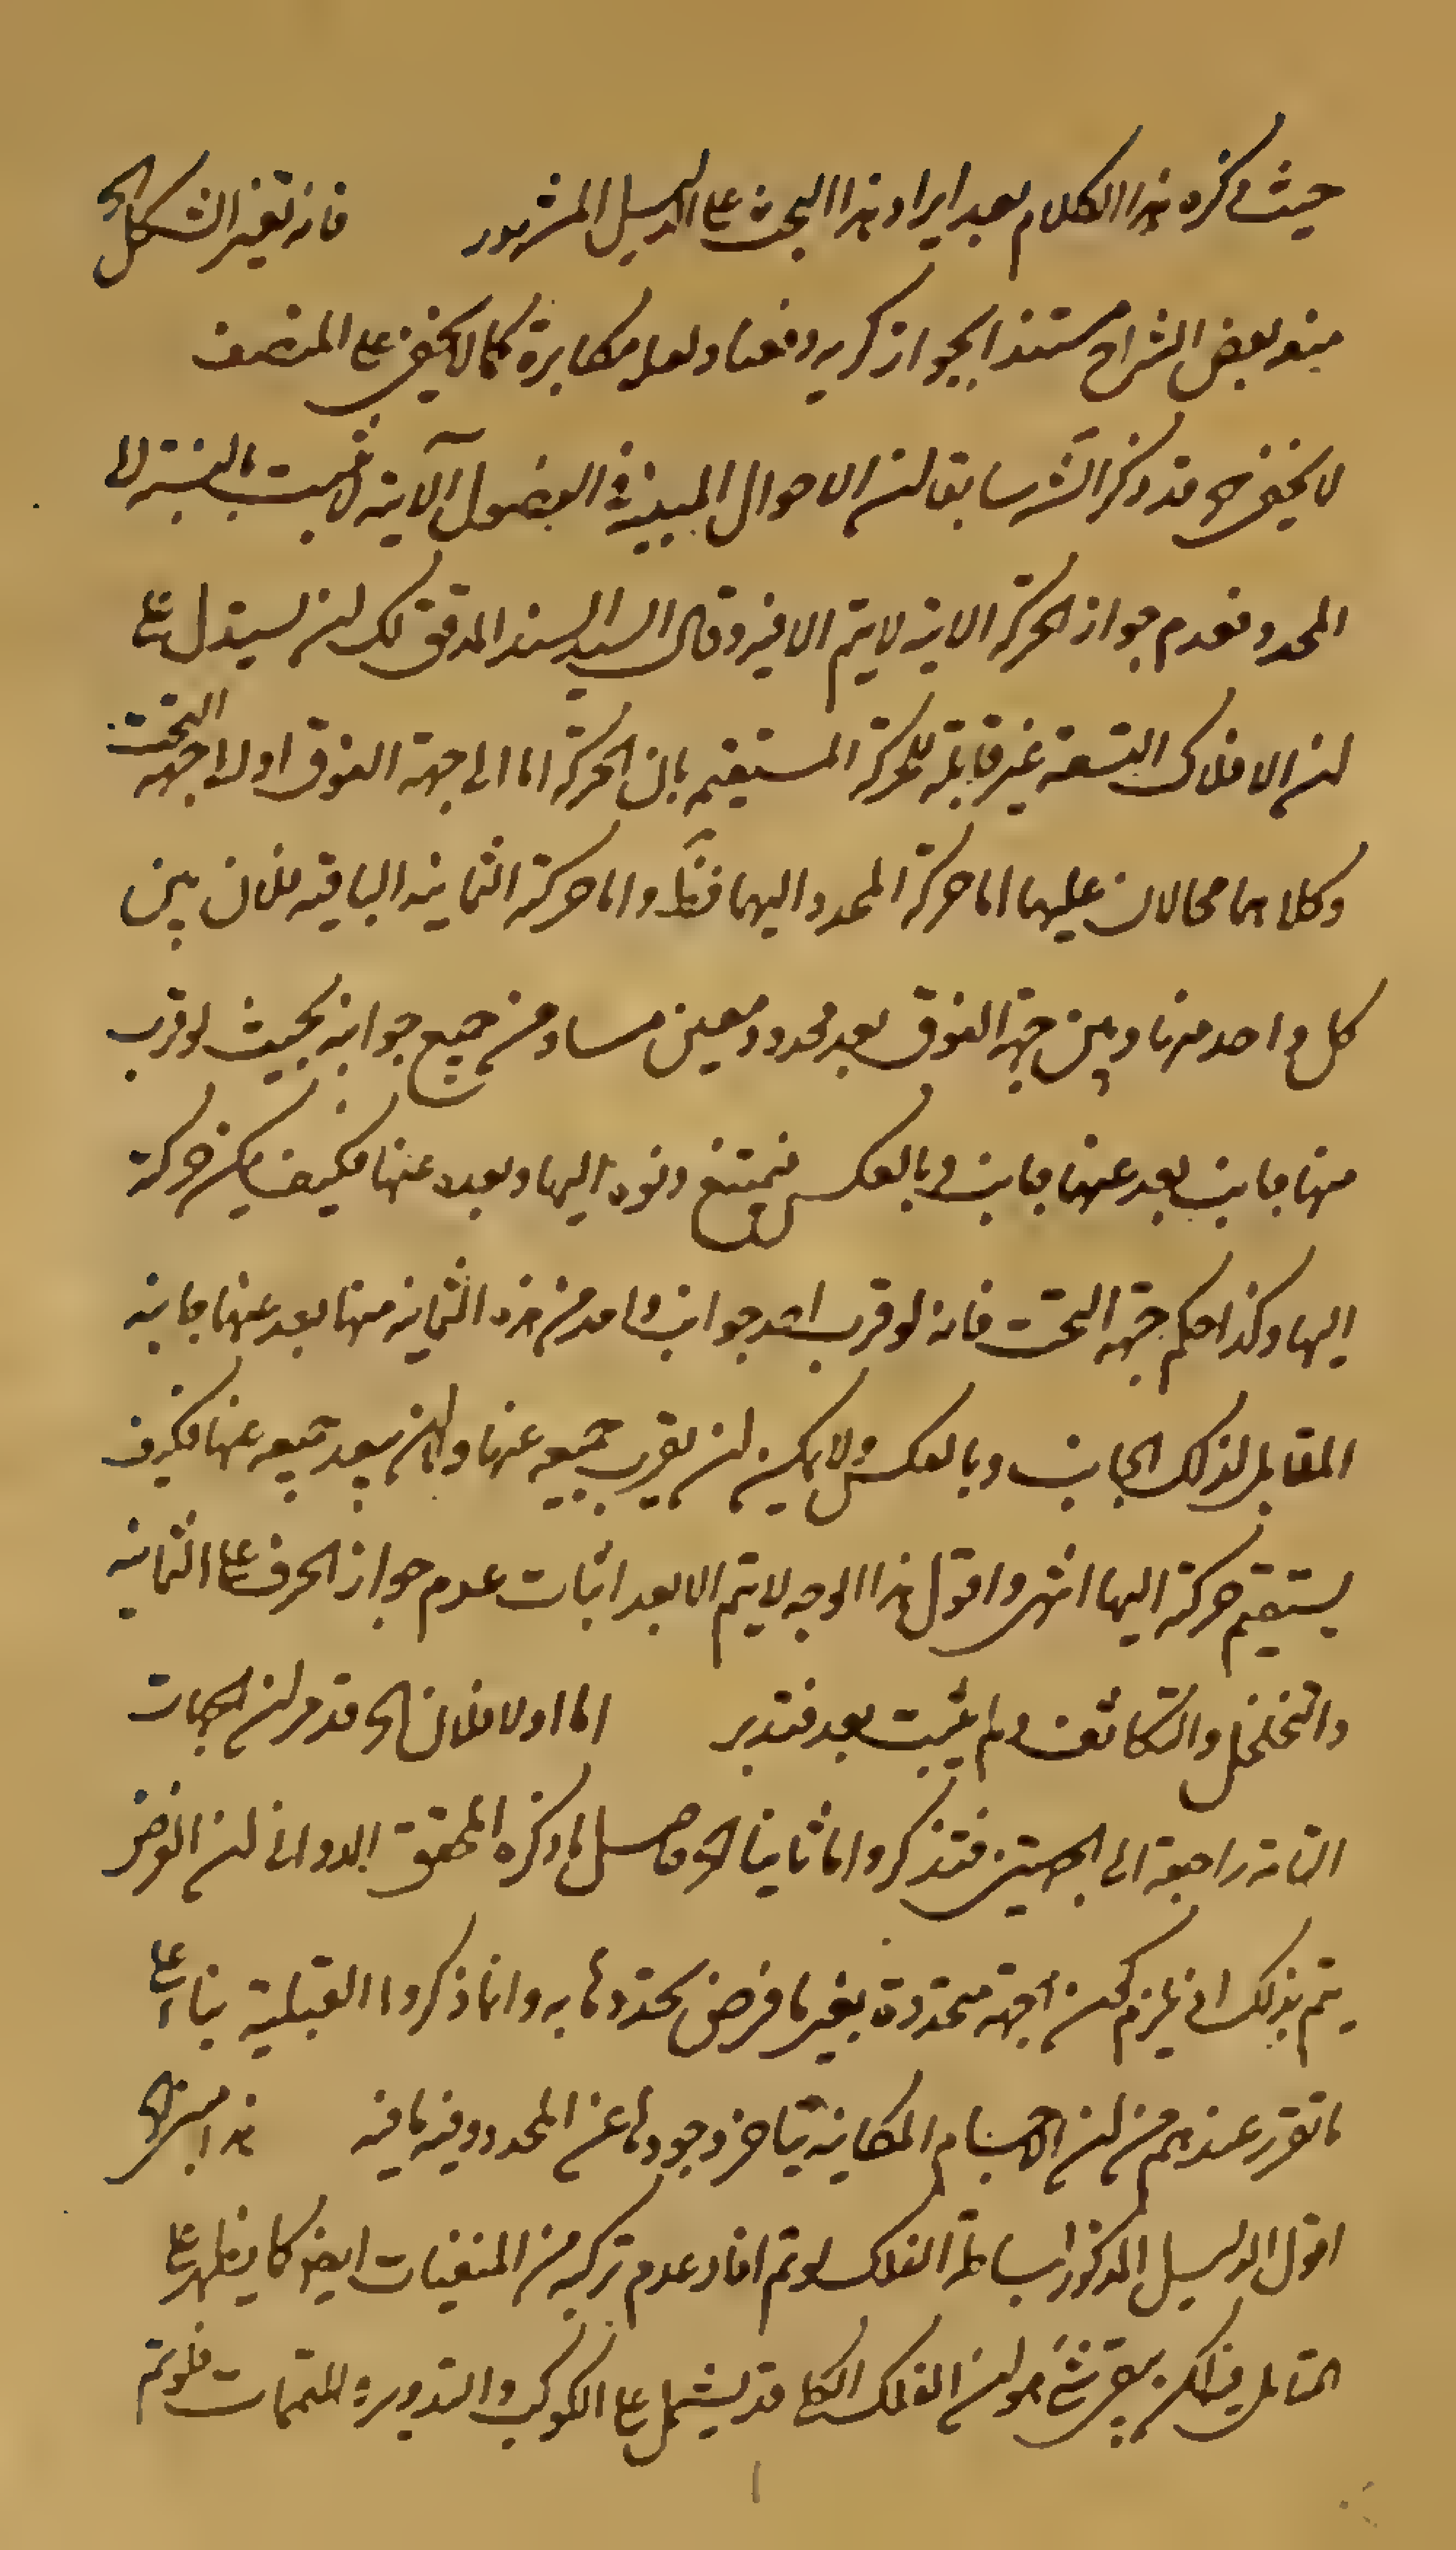 حيث ذكره هذا الكلام بعد ايراد هذا البحث على الدليل المشهور فانه تغير الشكل الخ
منعه بعض الشراح مستندا بجواز كريه دفعنا ولعله مكابرة كما لا يخفى على المنصف
لا يخفى وقد ذكر الش سابقا ان الاحوال المبينة في الفصول الآتية لا يثبت بالنسبة الى
المحدد فعدم جواز الحركة الاينية لا يتم الا فيه وقال السيد السند المدقق لك ان تستدل على
ان الافلاك التسعة غير قابلة للحركة المستقيمة بان الحركة اما الى جهة الفوق او الى جهة التحت
وكلاهما محالان عليها اما حركة المحدد اليهما فظ واما حركة الثمانية الباقية فلان بين
كل واحد منها وبين جهة الفوق بعد محدود معين مساو من جميع جوانبه بحيث لو قرب
منها جانب بعد عنها جانب وبالعكس فيمتنع دنوه اليها وبعده عنها فكيف يمكن حركة
اليها وكذا حكم جهة التحت فانه لو قرب احد جوانب واحد من هذه الثمانية منها بعد عنها جانبه
المقابل لذلك الجانب وبالعكس ولا يمكن ان يقرب جميعه عنها وان يبعد جميعه عنها فكيف
يستقيم حركة اليها انتهى واقول هذا الوجه لا يتم الا بعد اثبات عدم جواز الخرق على الثمانية
والتخلخل والتكاثف ولم يثبت بعد فتدبر اما اولا فلان الخ قد مر ان الجهات
الثامنة راجعة الى الجهتين فتذكر واما ثانيا الخ حاصل ما ذكره المحقق الدواني ان الغرض
يتم بذلك اذ يلزم كون جهة متحددة بغير ما فرض تحددها به وانما ذكروا القبلية بناء على
ما تقرر عندهم من ان الاجسام المكانية يتاخر وجودها عن المحدد وفيه ما فيه هذا مبني الخ
اقول الدليل المذكور لبساطة الفلك لو تم افاد عدم تركبه من المتفقات ايضا كما يظهر على
المتامل فيه لكن بقي شئ هو ان الفلك الكلي قد يشتمل على الكوكب والتدوير والمتممات فلو تم